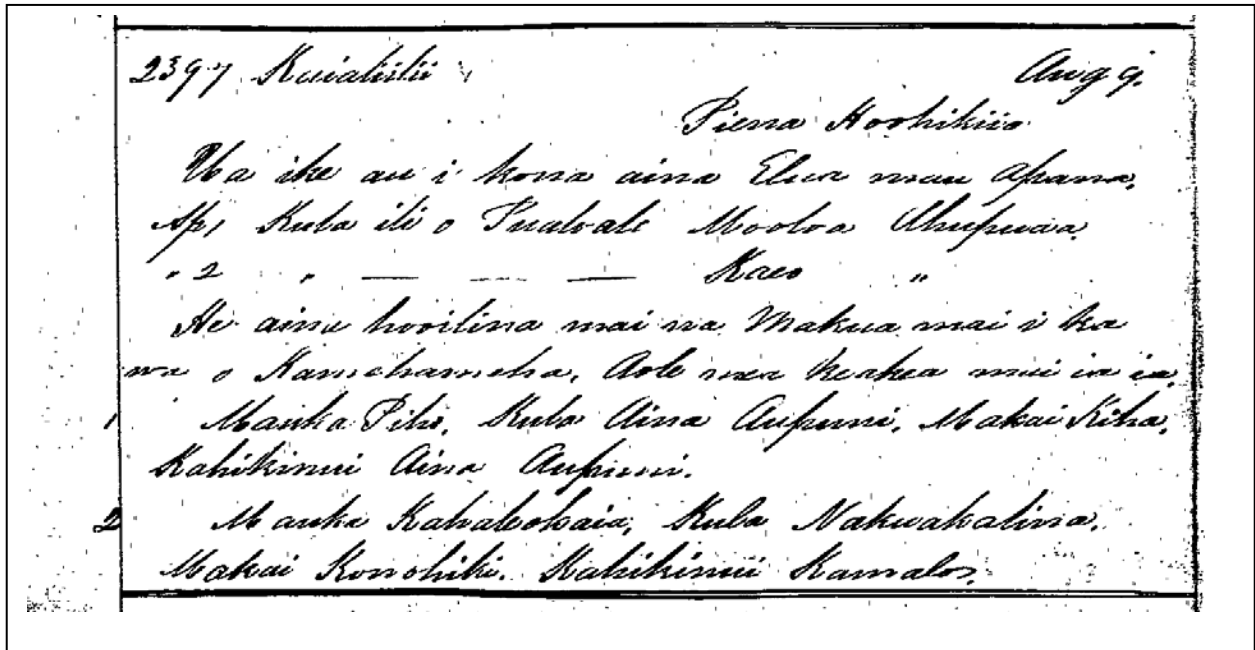 2397 Kuialiilii Aug 9.
Piena Hoohikiia
Ua ike au i kona aina Elua mau Apana,
Ap, 1 Kula ili o Mooloa Ahupuaa
" 2 " — — — Kaeo "
He aina hooilina mai na Makua mai i ka
wa o Kamehameha, Aole mea keakea mai ia ia,
1 Mauka Piho, Kula Aina Aupuni, Makai Kiha,
Kahikinui Aina Aupuni.
2 Mauka Kahaleokaia, Kula Nakuakalina,
Makai Konohiki. Kahikinui Kamalo,